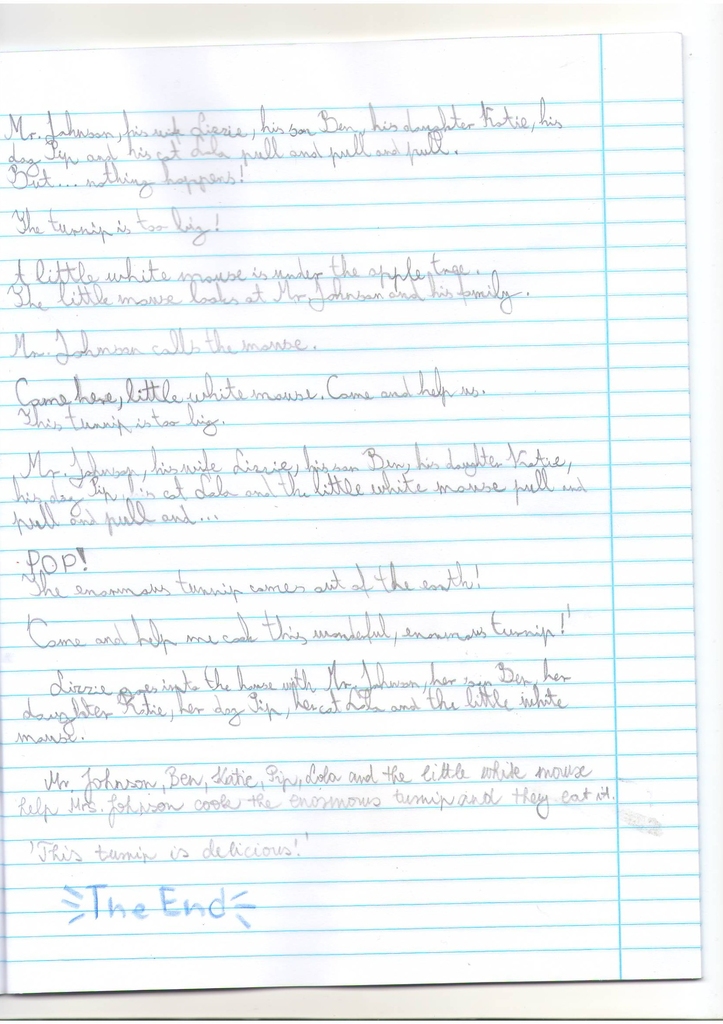 Mr. Johnson, his wife Lizzie, his son Ben, his daughter Katie, his
dog Pip and his cat Lola pull and pull and pull.
But... nothing happens!
The turnip is too big!
A little white mouse is under the apple tree.
The little mouse looks at Mr. Johnson and his family.
Mr. Johnson calls the mouse.
Come here, little white mouse. Come and help us.
This turnip is too big.
Mr. Johnson, his wife Lizzie, his son Ben, his daughter Katie,
his dog Pip, his cat Lola and the little white mouse pull and
pull and pull and...
POP!
The enormous turnip comes out of the earth!
'Come and help me cook this wonderful, enormous turnip!'
Lizzie goes into the house with Mr. Johnson, her son Ben, her
daughter Katie, her dog Pip, her cat Lola and the little white
mouse.
Mr. Johnson, Ben, Katie, Pip, Lola and the little white mouse
help Mrs. Johnson cook the enormous turnip and they eat it.
'This turnip is delicious!'
The End